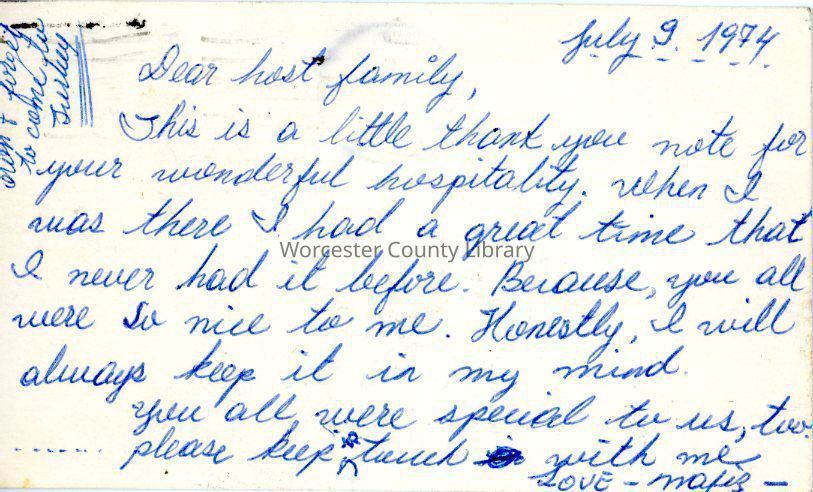 July 9. 1974
Dear host family,
This is a little thank you note for
your wonderful hospitality. When I
was there I had a great time that
I never had it before. Because, you all
were so nice to me. Honestly, I will
always keep it in my mind.
You all were special to us, too.
...... please keep in touch with me
LOVE -
Don't forget
to come to
Turkey
Worcester County Library